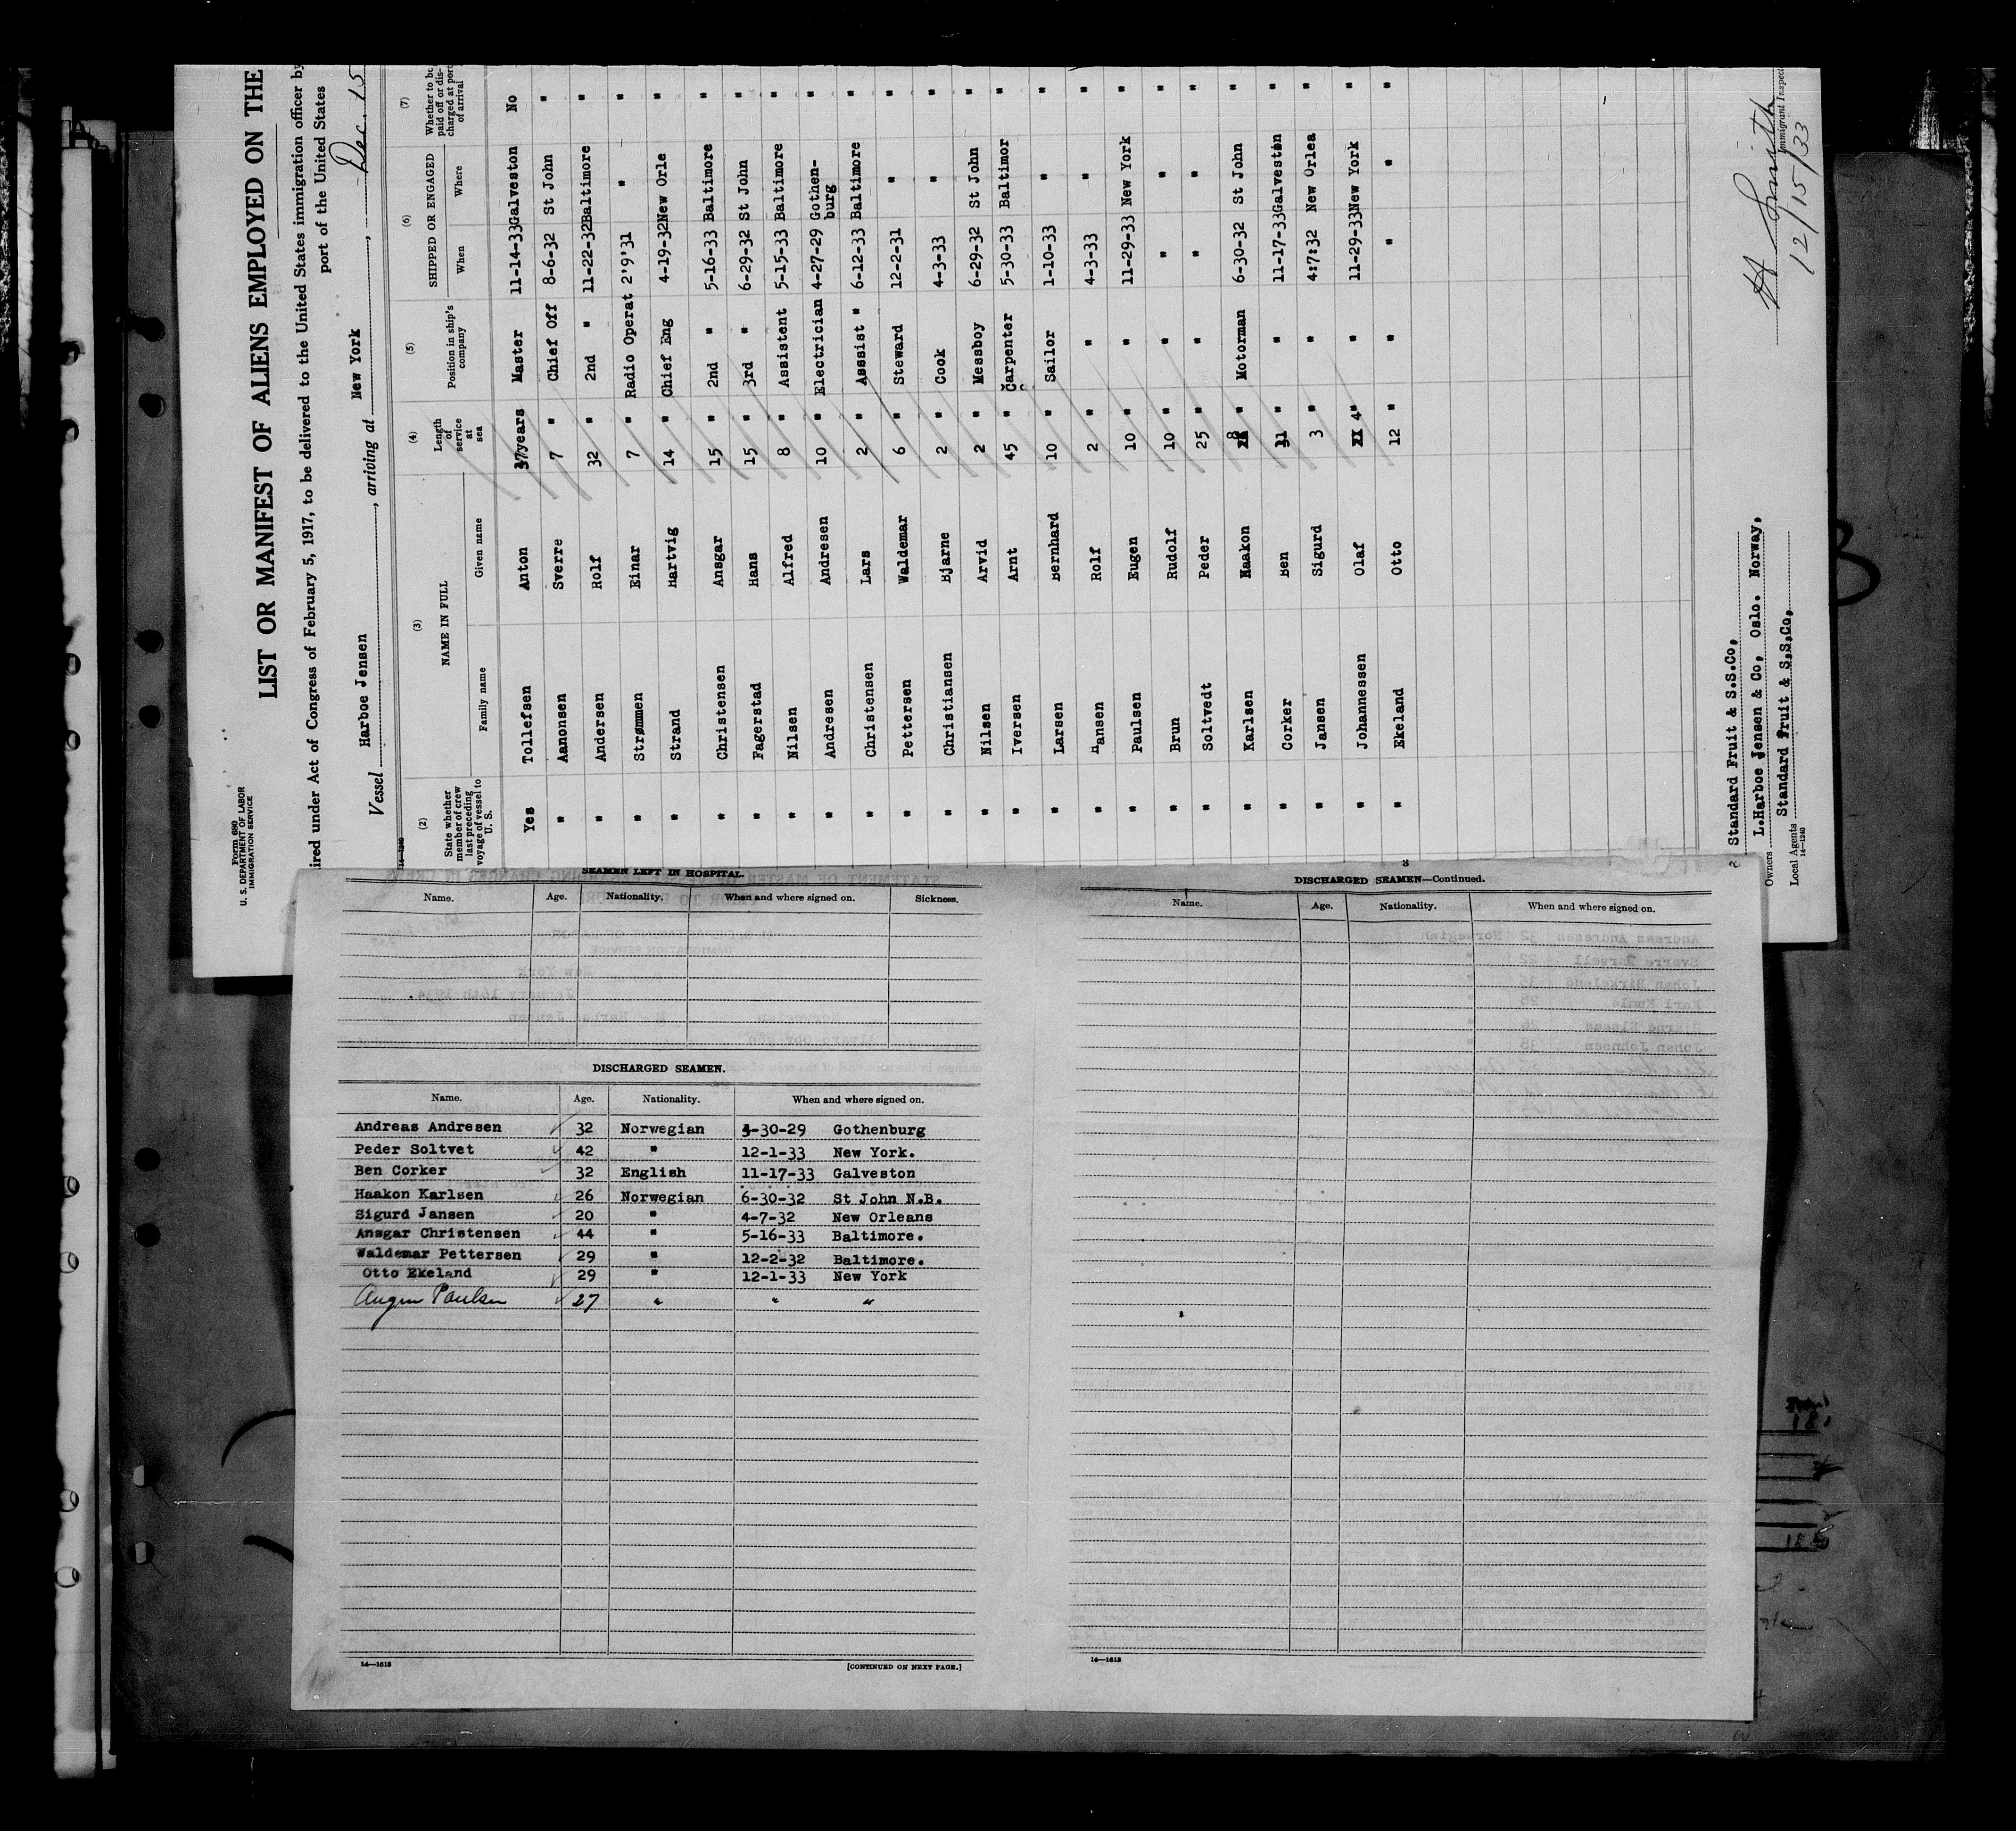 Form 680
U. S. DEPARTMENT OF LABOR
IMMIGRATION SERVICE
LIST OR MANIFEST OF ALIENS EMPLOYED ON THE
ired under Act of Congress of February 5, 1917, to be delivered to the United States immigration officer by
port of the United States
Vessel Harboe Jensen, arriving at New York, Dec. 15
14-1240
(2) (3) (4) (5) (6) (7)
State whether member of crew last preceding voyage of vessel to U. S. NAME IN FULL Length of service at sea Position in ship's company SHIPPED OR ENGAGED Whether to be paid off or discharged at port of arrival
Family name Given name When Where
Yes Tollefsen Anton 37years Master 11-14-33 Galveston No
" Aanonsen Sverre 7 " Chief Off 8-6-32 St John "
" Andersen Rolf 32 " 2nd " 11-22-32 Baltimore "
" Strømmen Einar 7 " Radio Operat 2'9'31 " "
" Strand Hartvig 14 " Chief Eng 4-19-32 New Orle "
" Christensen Ansgar 15 " 2nd " 5-16-33 Baltimore "
" Fagerstad Hans 15 " 3rd " 6-29-32 St John "
" Nilsen Alfred 8 " Assistent 5-15-33 Baltimore "
" Andresen Andresen 10 " Electrician 4-27-29 Gothen-burg "
" Christensen Lars 2 " Assist " 6-12-33 Baltimore "
" Pettersen Waldemar 6 " Steward 12-2-31 " "
" Christiansen Bjarne 2 " Cook 4-3-33 " "
" Nilsen Arvid 2 " Messboy 6-29-32 St John "
" Iversen Arnt 45 " Carpenter 5-30-33 Baltimor "
" Larsen Bernhard 10 " Sailor 1-10-33 " "
" Hansen Rolf 2 " " 4-3-33 " "
" Paulsen Eugen 10 " " 11-29-33 New York "
" Brun Rudolf 10 " " " " "
" Soltvedt Peder 25 " " " " "
" Karlsen Haakon 8 " Motorman 6-30-32 St John "
" Corker Ben 11 " " 11-17-33 Galveston "
" Jansen Sigurd 3 " " 4:7:32 New Orlea "
" Johannessen Olaf 4" " 11-29-33 New York "
" Ekeland Otto 12 " " " " "
Standard Fruit & S.S.Co,
Owners L.Harboe Jensen & Co, Oslo. Norway,
Local Agents Standard Fruit & S,S,Co,
14-1240
H Smith
Immigrant Inspec
12/15/33
SEAMEN LEFT IN HOSPITAL.
Name. Age. Nationality. When and where signed on. Sickness.
DISCHARGED SEAMEN.
Name. Age. Nationality. When and where signed on.
Andreas Andresen 32 Norwegian 3-30-29 Gothenburg
Peder Soltvet 42 " 12-1-33 New York.
Ben Corker 32 English 11-17-33 Galveston
Haakon Karlsen 26 Norwegian 6-30-32 St John N.B.
Sigurd Jansen 20 " 4-7-32 New Orleans
Ansgar Christensen 44 " 5-16-33 Baltimore.
Waldemar Pettersen 29 " 12-2-32 Baltimore.
Otto Ekeland 29 " 12-1-33 New York
Augen Paulsen 27 " " "
14-1613
[CONTINUED ON NEXT PAGE.]
DISCHARGED SEAMEN—Continued.
Name. Age. Nationality. When and where signed on.
14-1613